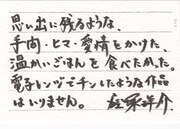 思い出に残るような、
手間・ヒマ・愛情をかけた、
温かいごはんを食べたかった。
電子レンヂでチンしたような作品
はいりません。 庵栄洋介